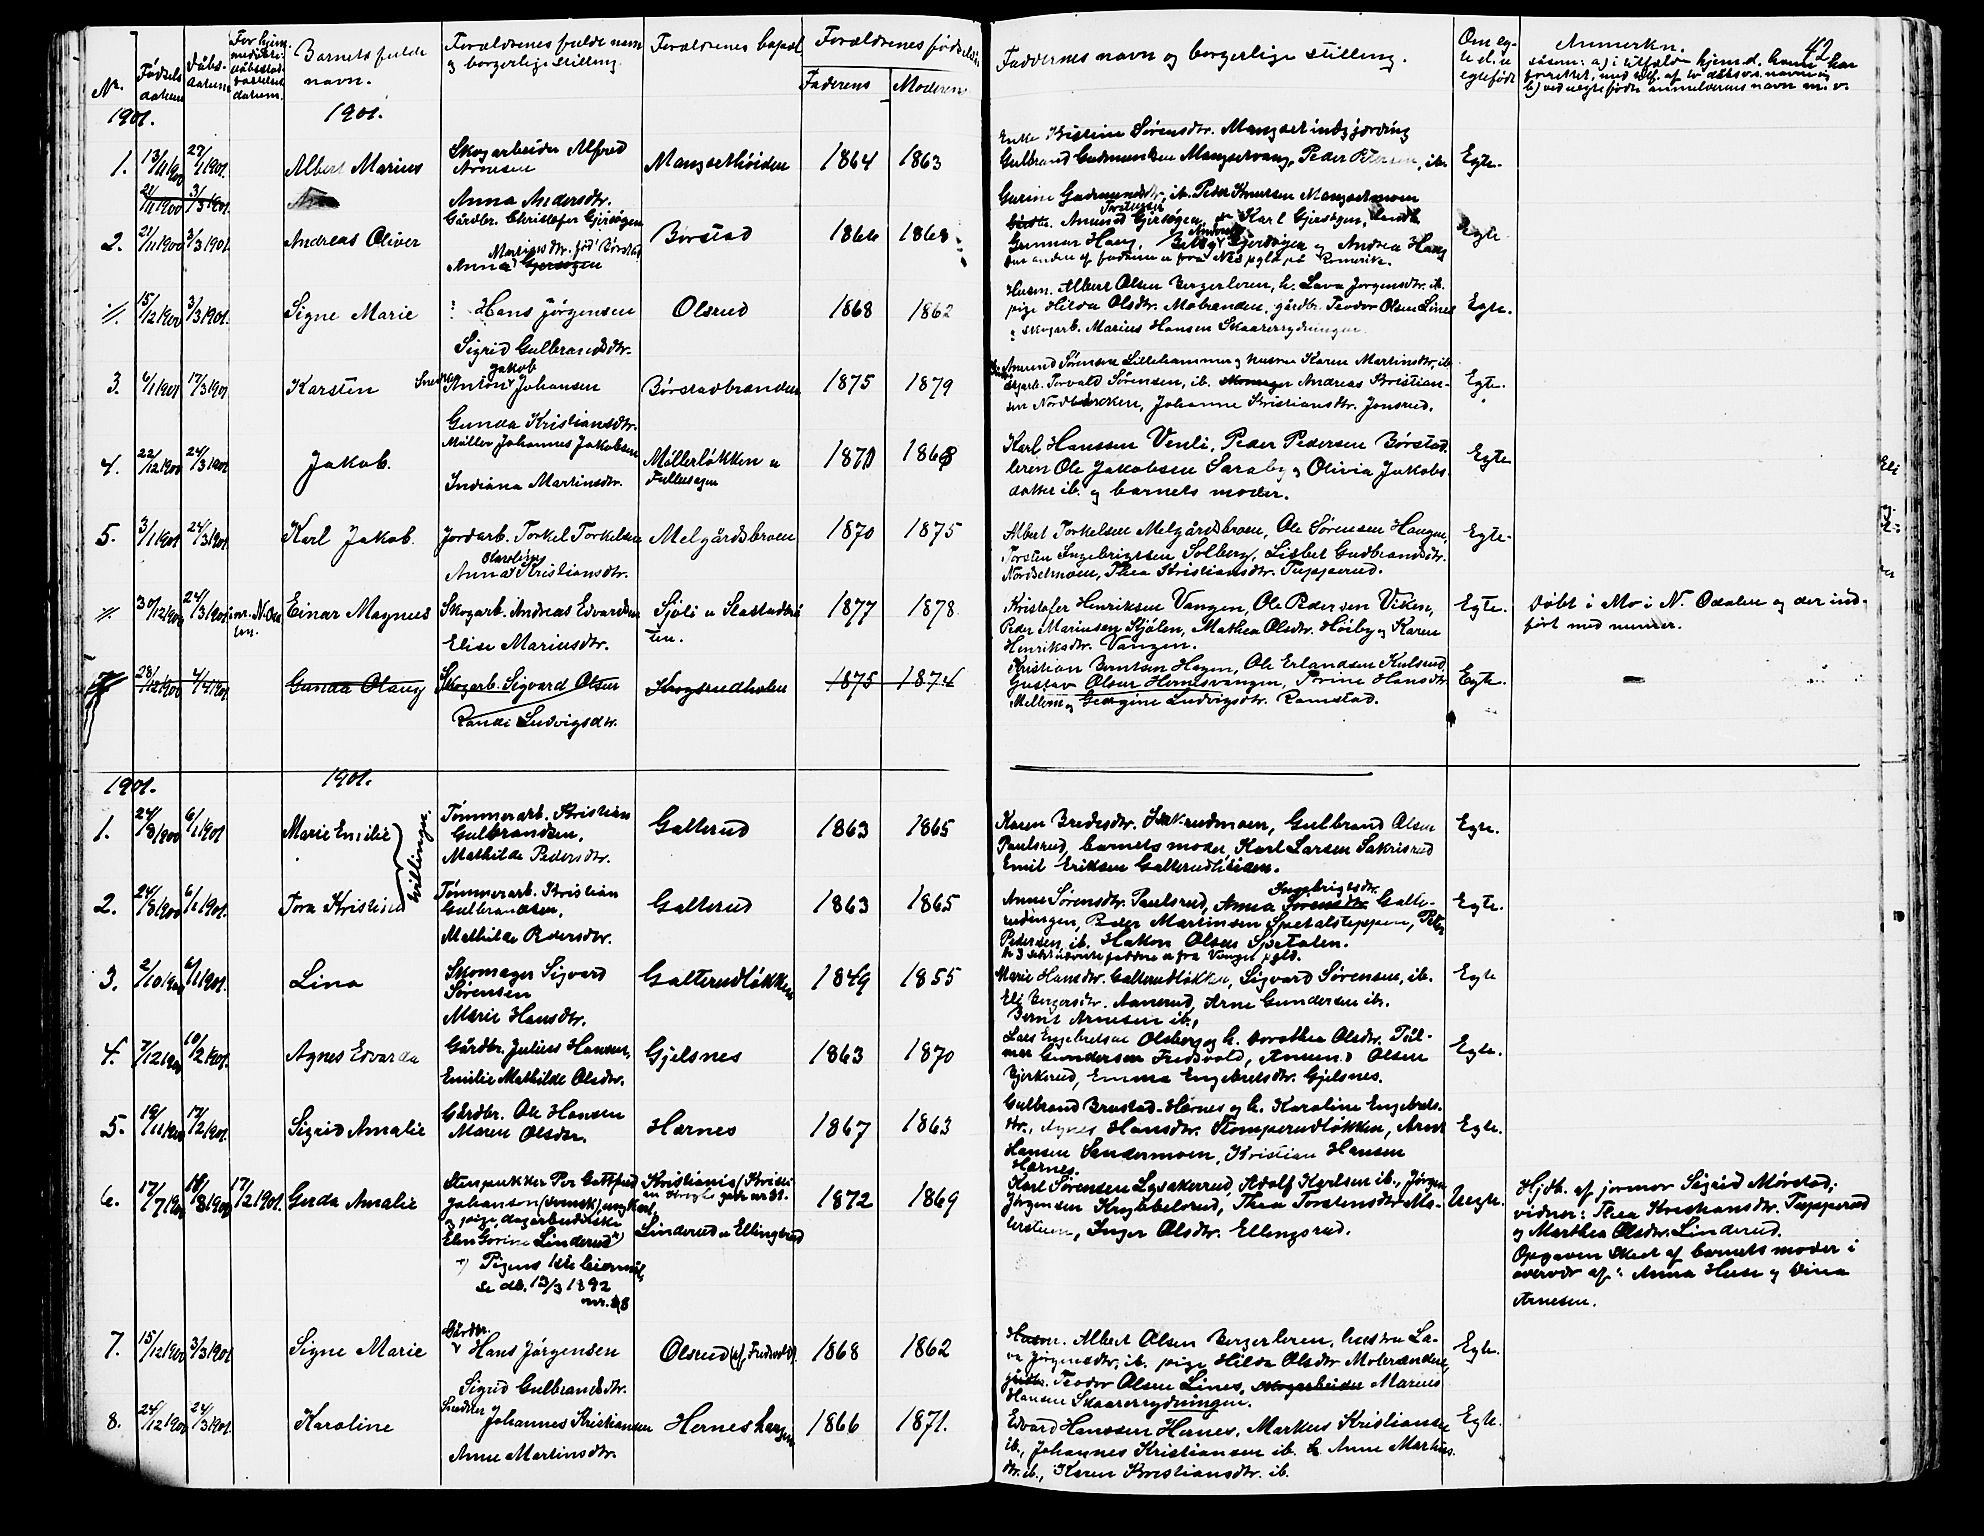 42
Nr.
Fødsels
datum
Dåbs-
datum
For hjem.
døbte
dåbsstad-
fæstelses
datum.
Barnets fulde
navn.
Forældrenes fulde navn
og borgerlige stilling.
Forældrenes bopæl
Forældrenes fødselsår
Faderens
Moderens
Faddernes navn og borgerlige stilling.
Om eg-
te el. u
egtefødt
Anmerkn.
1901.
1901.
1. 13/11 1900 27/1 1901. Albert Marius
Skogarbeider Alfred
Arnesen
Anna Andersdtr.
Mangsethøiden 1864 1863
Enke Kristine Sørensdtr. Mangset
Gulbrand Gudmundsen Mangsetvang, Peder Petersen, ib.
Gurine Gudmundsdtr. ib. Peder Knutsen Mangsetmoen
Egte.
21/11 1900 3/3 1901.
2. 21/11 1900 3/3 1901. Andreas Oliver
Gårdbr. Christofer Gjersøgen
Anna Gjersøgen
Børstad 1866 1868
Amund Gjersøgen, Karl Gjersøgen,
Gunnar Haug, Gjersøgen og Andrea Haug
Egte
//. 15/12 1900 3/3 1901. Signe Marie
Hans Jørgensen
Sigrid Gulbrandsdtr.
Olsrud 1868 1862
Husm. Albert Olsen Bergerleren, h. Lava Jørgensdtr. ib.
pige Hilda Olsdtr. Mobrænden, gårdbr. Teodor Olsen Lines
og skogarb. Marius Hansen Skaarerrydningen.
Egte.
3. 6/1 1901 17/3 1901 Karsten
Snedker Anton Jakob Johansen
Gunda Kristiansdtr.
Børstadbrænden 1875 1879
Amund Sørensen Lillehammer og hustru Karen Martinsdtr. ib.
Torvald Sørensen, ib. Andreas Kristian-
sen, Johanne Kristiansdtr. Jonsrud.
Egte.
4. 22/12 1900 24/3 1901 Jakob.
Møller Johannes Jakobsen
Indiana Martinsdtr.
Møllerløkken u
Fulusagen
1870 1868
Karl Hanssen Venli, Peder Pedersen Børstad
leren Ole Jakobsen Saraby og Olivia Jakobs-
datter ib. og barnets moder.
Egte
5. 3/1 1901 24/3 1901. Karl Jakob.
Jordarb. Torkel Torkelsen
Anna Karoline Kristiansdtr.
Melgårdsbroen 1870 1875
Albert Torkelsen Melgårdsbroen, Ole Sørensen Haugen,
Torsten Ingebrigtsen Solberg, Lisbet Gudbrandsdtr.
Nordsetmoen, Thea Kristiansdtr. Tupperud.
Egte.
//. 30/12 1900 24/3 1901 Einar Magnus
Skogarb. Andreas Edvardsen
Elise Mariusdtr.
Sjøli u Slastadbrå
ten.
1877 1878
Kristofer Henriksen Vangen, Ole Pedersen Viken,
Peder Mariussen Sjølen, Mathea Olsdtr. Høiby og Karen
Henriksdtr. Vangen.
Egte.
Døbt i Mo i N. Odalen og der ind-
ført med numer.
28/12 1900 4/4 1901 Gunda Olaug
Skogarb. Sigvard Olsen
Randi Ludvigsdtr.
Skogsrudholen 1875 1874
Kristian Berntsen Hagen, Ole Erlandsen Kulsrud
Gustav Olsen Hernesvangen, Sorine Hansdtr.
Mellem og Georgine Ludvigsdtr. Ramstad.
Egte.
1901.
1901.
1. 24/8 1900 6/1 1901 Marie Emilie
tvillinger.
Tømmerarb. Kristian
Gulbrandsen,
Mathilde Pedersdtr.
Galterud 1863 1865
Karen Bredesdtr. Sakrudmoen, Gulbrand Olsen
Paulsrud, barnets moder, Karl Larsen Sakrisrud
Emil Eriksen Galterudteien.
Egte.
2. 24/8 1900 6/1 1901. Tora Kristine
Tømmerarb. Kristian
Gulbrandsen,
Mathilde Pedersdtr.
Galterud 1863 1865
Anne Sørensdtr. Paulsrud, Anna Sørensdtr. Ingebrigtsdtr. Galte-
rudengen, Peder Martinsen Spetalsteppen, Peter
Pedersen ib. Hakon Olsen Spetalen.
Egte.
3. 2/10 1900 6/1 1901. Lina
Skomager Sigvard
Sørensen
Marie Hansdtr.
Galterudløkken 1849 1855
Marie Hansdtr. Galterudløkken, Sigvard Sørensen, ib.
Eli Bergersdtr. Aanerud, Arne Gundersen ib.
Bernt Arnesen ib.,
Egte
4. 7/12 1900 10/2 1901. Agnes Edvarda
Gårdbr. Julius Hansen,
Emilie Mathilde Olsdtr.
Gjelsnes 1863 1870
Lars Engebretsen Olsberg og h. Dorothea Olsdtr. Till-
mer Gundersen Fredsvold, Amund Olsen
Bjerkerud, Emma Engebretsdtr. Gjelsnes.
Egte.
5. 19/11 1900 17/2 1901. Sigrid Amalie
Gårdbr. Ole Hansen
Maren Olsdtr.
Hernes 1867 1863
Gulbrand Brustad-Hernes og h. Karoline Engebrets-
dtr., Agnes Hansdtr. Stomperudløkken, Arne
Hansen Sandermoen, Kristian Hansen
Hernes.
Egte.
6. 17/7 1900 17/2 1901. Gerda Amalie
Stenpukker Per Gottfred
Johanson (svensk), ungkarl
og pige, dagarbeiderske
Elen Gorine Linderud
1892
Kristiania
Linderud u Ellingsrud
1872 1869
Karl Sørensen Lysakerrud, Adolf Karlsen ib., Jørgen
Jørgensen Knybbelsrud, Thea Torstensdtr. Ma-
lerstuen, Inger Olsdtr. Ellingsrud.
Uegte.
Hjdb. af jormor Sigrid Mørstad;
vidner: Thea Kristiansdtr. Tupperud
og Marthea Olsdtr. Linderud.
Opgaven skeet af barnets moder i
overvær af: Anna Huse og Dina
Arnesen.
7. 15/12 1900 3/3 1901 Signe Marie
Gårdbr.
Hans Jørgensen
Sigrid Gulbrandsdtr.
Olsrud 1868 1862
Husm. Albert Olsen Bergerleren, hustru La-
va Jørgensdtr. ib. pige Hilda Olsdtr. Mobrænden,
gårdbr. Teodor Olsen Lines, skogarbeider Marius
Hansen Skaarerrydningen.
Egte.
8. 24/12 1900 24/3 1901. Karoline
Snedker Johannes Kristiansen
Anne Martinsdtr.
Herneshaugen 1866 1871.
Edvard Hanssen Hernes, Markus Kristiansen
ib., Johannes Kristiansen ib. & Anne Martins
dtr. ib., Karen Kristiansdtr. ib.
Egte.